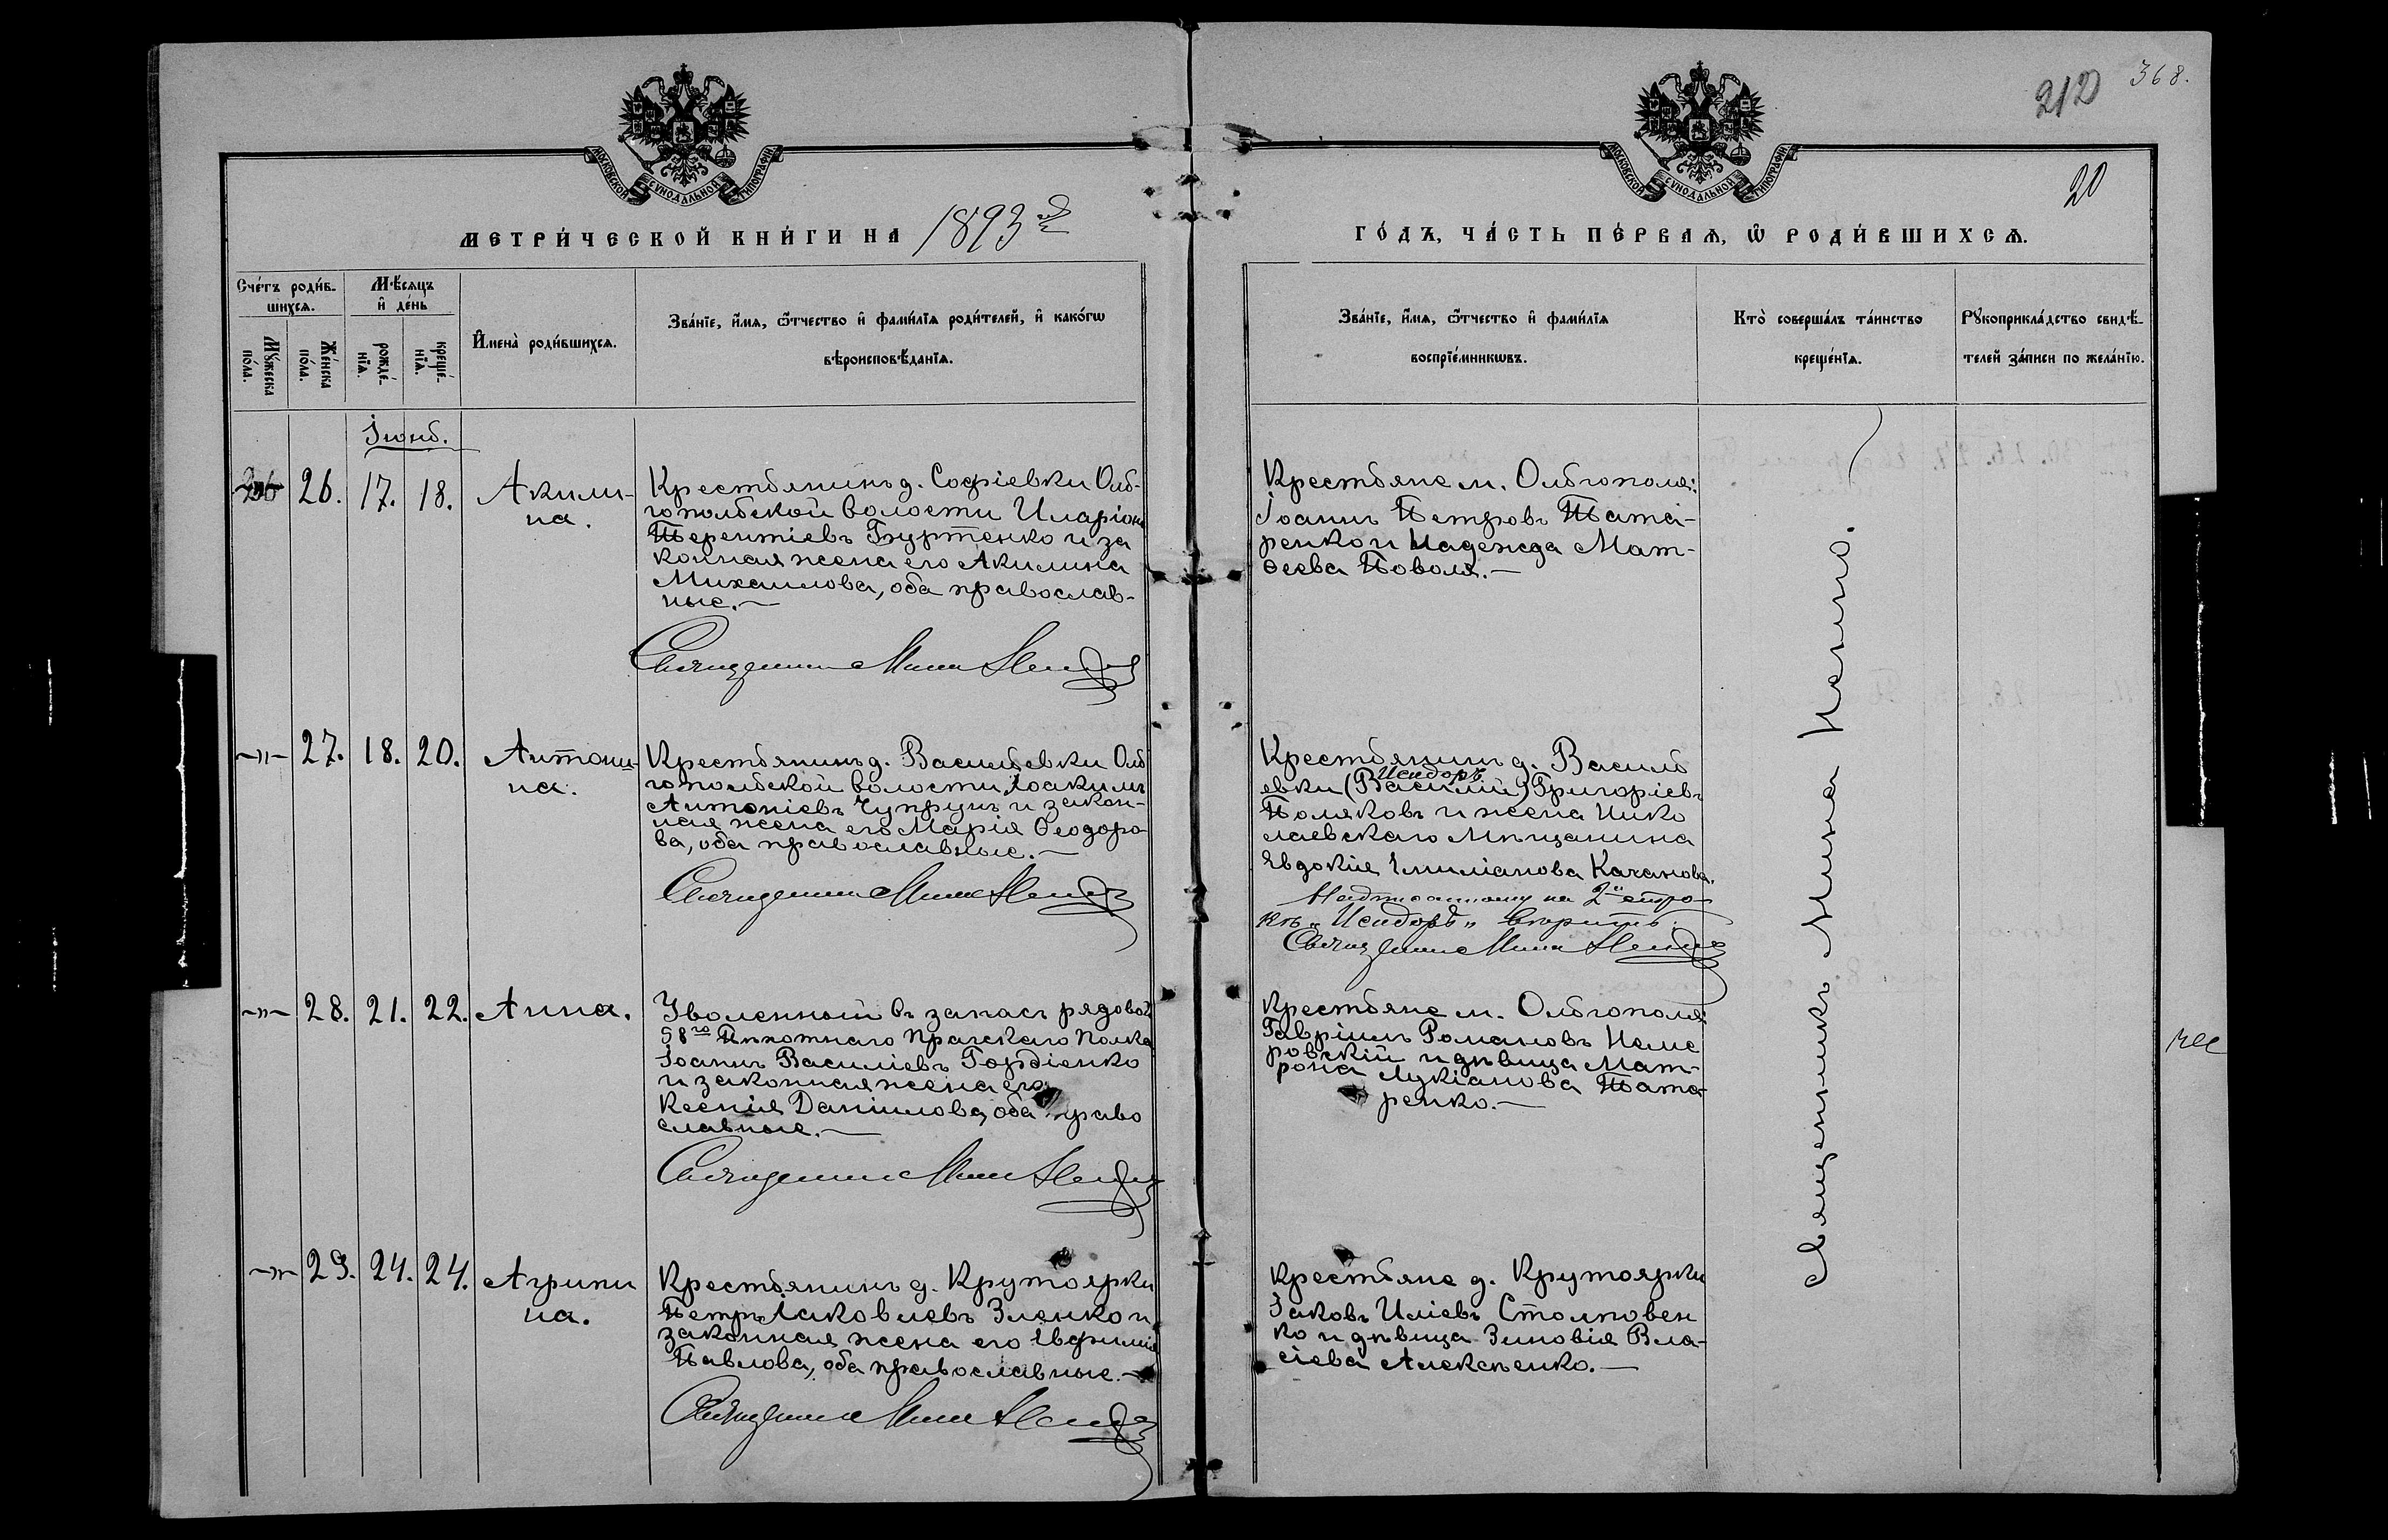 368.
212
20
МОСКОВСКОЙ СѴНОДАЛЬНОЙ ТИПОГРАФІИ
МОСКОВСКОЙ СѴНОДАЛЬНОЙ ТИПОГРАФІИ
МЕТРИ́ЧЕСКОЙ КНИ́ГИ НА 1893й
ГО́ДЪ, ЧА́СТЬ ПЕ́РВАѦ, Ѽ РОДИ́ВШИХСѦ.
Сче́тъ роди́в-
шихсѧ.
Мꙋ́жеска
по́ла.
Же́нска
по́ла.
Мѣ́сѧцъ
и҆ де́нь
рожде́-
нїѧ.
креще́-
нїѧ.
И҆мена̀ роди́вшихсѧ.
Зва́нїе, и҆́мѧ, ѻ҆́тчество и҆ фами́лїѧ роди́телей, и҆ како́гѡ
вѣроисповѣ́данїѧ.
Зва́нїе, и҆́мѧ, ѻ҆́тчество и҆ фами́лїѧ
воспрїе́мникѡвъ.
Кто̀ соверша́лъ та́инство
креще́нїѧ.
Рꙋкоприкла́дство свидѣ́-
телей за́писи по жела́нїю.
Іюнь.
26 26. 17. 18. Акили-
на.
Крестьянинъ д. Софіевки Оль-
гопольской волости Иларіонъ
Терентіевъ Гнуртенко и за
конная жена его Акилина
Михаилова, оба православ-
ные.—
Крестьяне м. Ольгополя:
Іоаннъ Петровъ Тата-
ренко и Надежда Мат-
ѳеева Поволя.—
—„— 27. 18. 20. Антони-
на.
Крестьянинъ д. Васильевки Оль
гопольской волости, Іоакимъ
Антоніевъ Чупрунъ и закон-
ная жена его Марія Ѳеодоро-
ва, оба православные.—
Крестьянинъ д. Василь
Исидоръ
евки (Василій) Григоріевъ
Поляковъ и жена Нико
лаевскаго мѣщанина
Евдокія Емиліанова Качанова.
Надписанному на 2й стро-
кѣ „Исидоръ" вѣрить.
—„— 28. 21. 22. Анна.
Уволенный въ запасъ рядовой
58го Пѣхотнаго Прагскаго полка
Іоаннъ Василіевъ Гордіенко
и законная жена его
Ксенія Даніилова, оба право
славные.—
Крестьяне м. Ольгополя:
Гавріилъ Романовъ Неме
ровскій и дѣвица Мат-
рона Лукіанова Тата-
ренко.—
—„— 29. 24. 24. Агрипи
на.
Крестьянинъ д. Крутоярки
Петръ Іаковлевъ Зленко и
законная жена его Евфимія
Павлова, оба православные.—
Крестьяне д. Крутоярки
Іаковъ Иліевъ Столповен
ко и дѣвица Зиновія Вла-
сіева Алексѣенко.—
Священникъ Мина